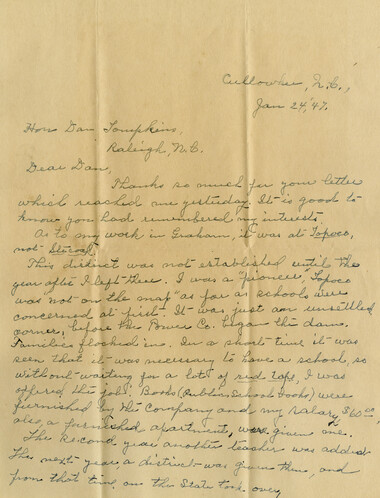 Cullowhee, N.C.,
Jan 24, '47.
Hon Dan Tompkins,
Raleigh, N.C.
Dear Dan,
Thanks so much for your letter
which reached me yesterday. It is good to
know you had remembered my interests.
As to my work in Graham, it was at Topoco,
not
This district was not established until the
year after I left there. I was a "pioneer," Topoco
was not "on the map" as far as schools were
concerned at first. It was just an unsettled
corner, before the Power Co. began the dams.
Families flocked in. In a short time it was
seen that it was necessary to have a school, so
without waiting for a lot of red tape, I was
offered the job. Books (Public School books) were
furnished by the Company and my salary $60.00,
also, a furnished apartment, were given me.
The second year another teacher was added
The next year a district was given them, and
from that time on the State took over,